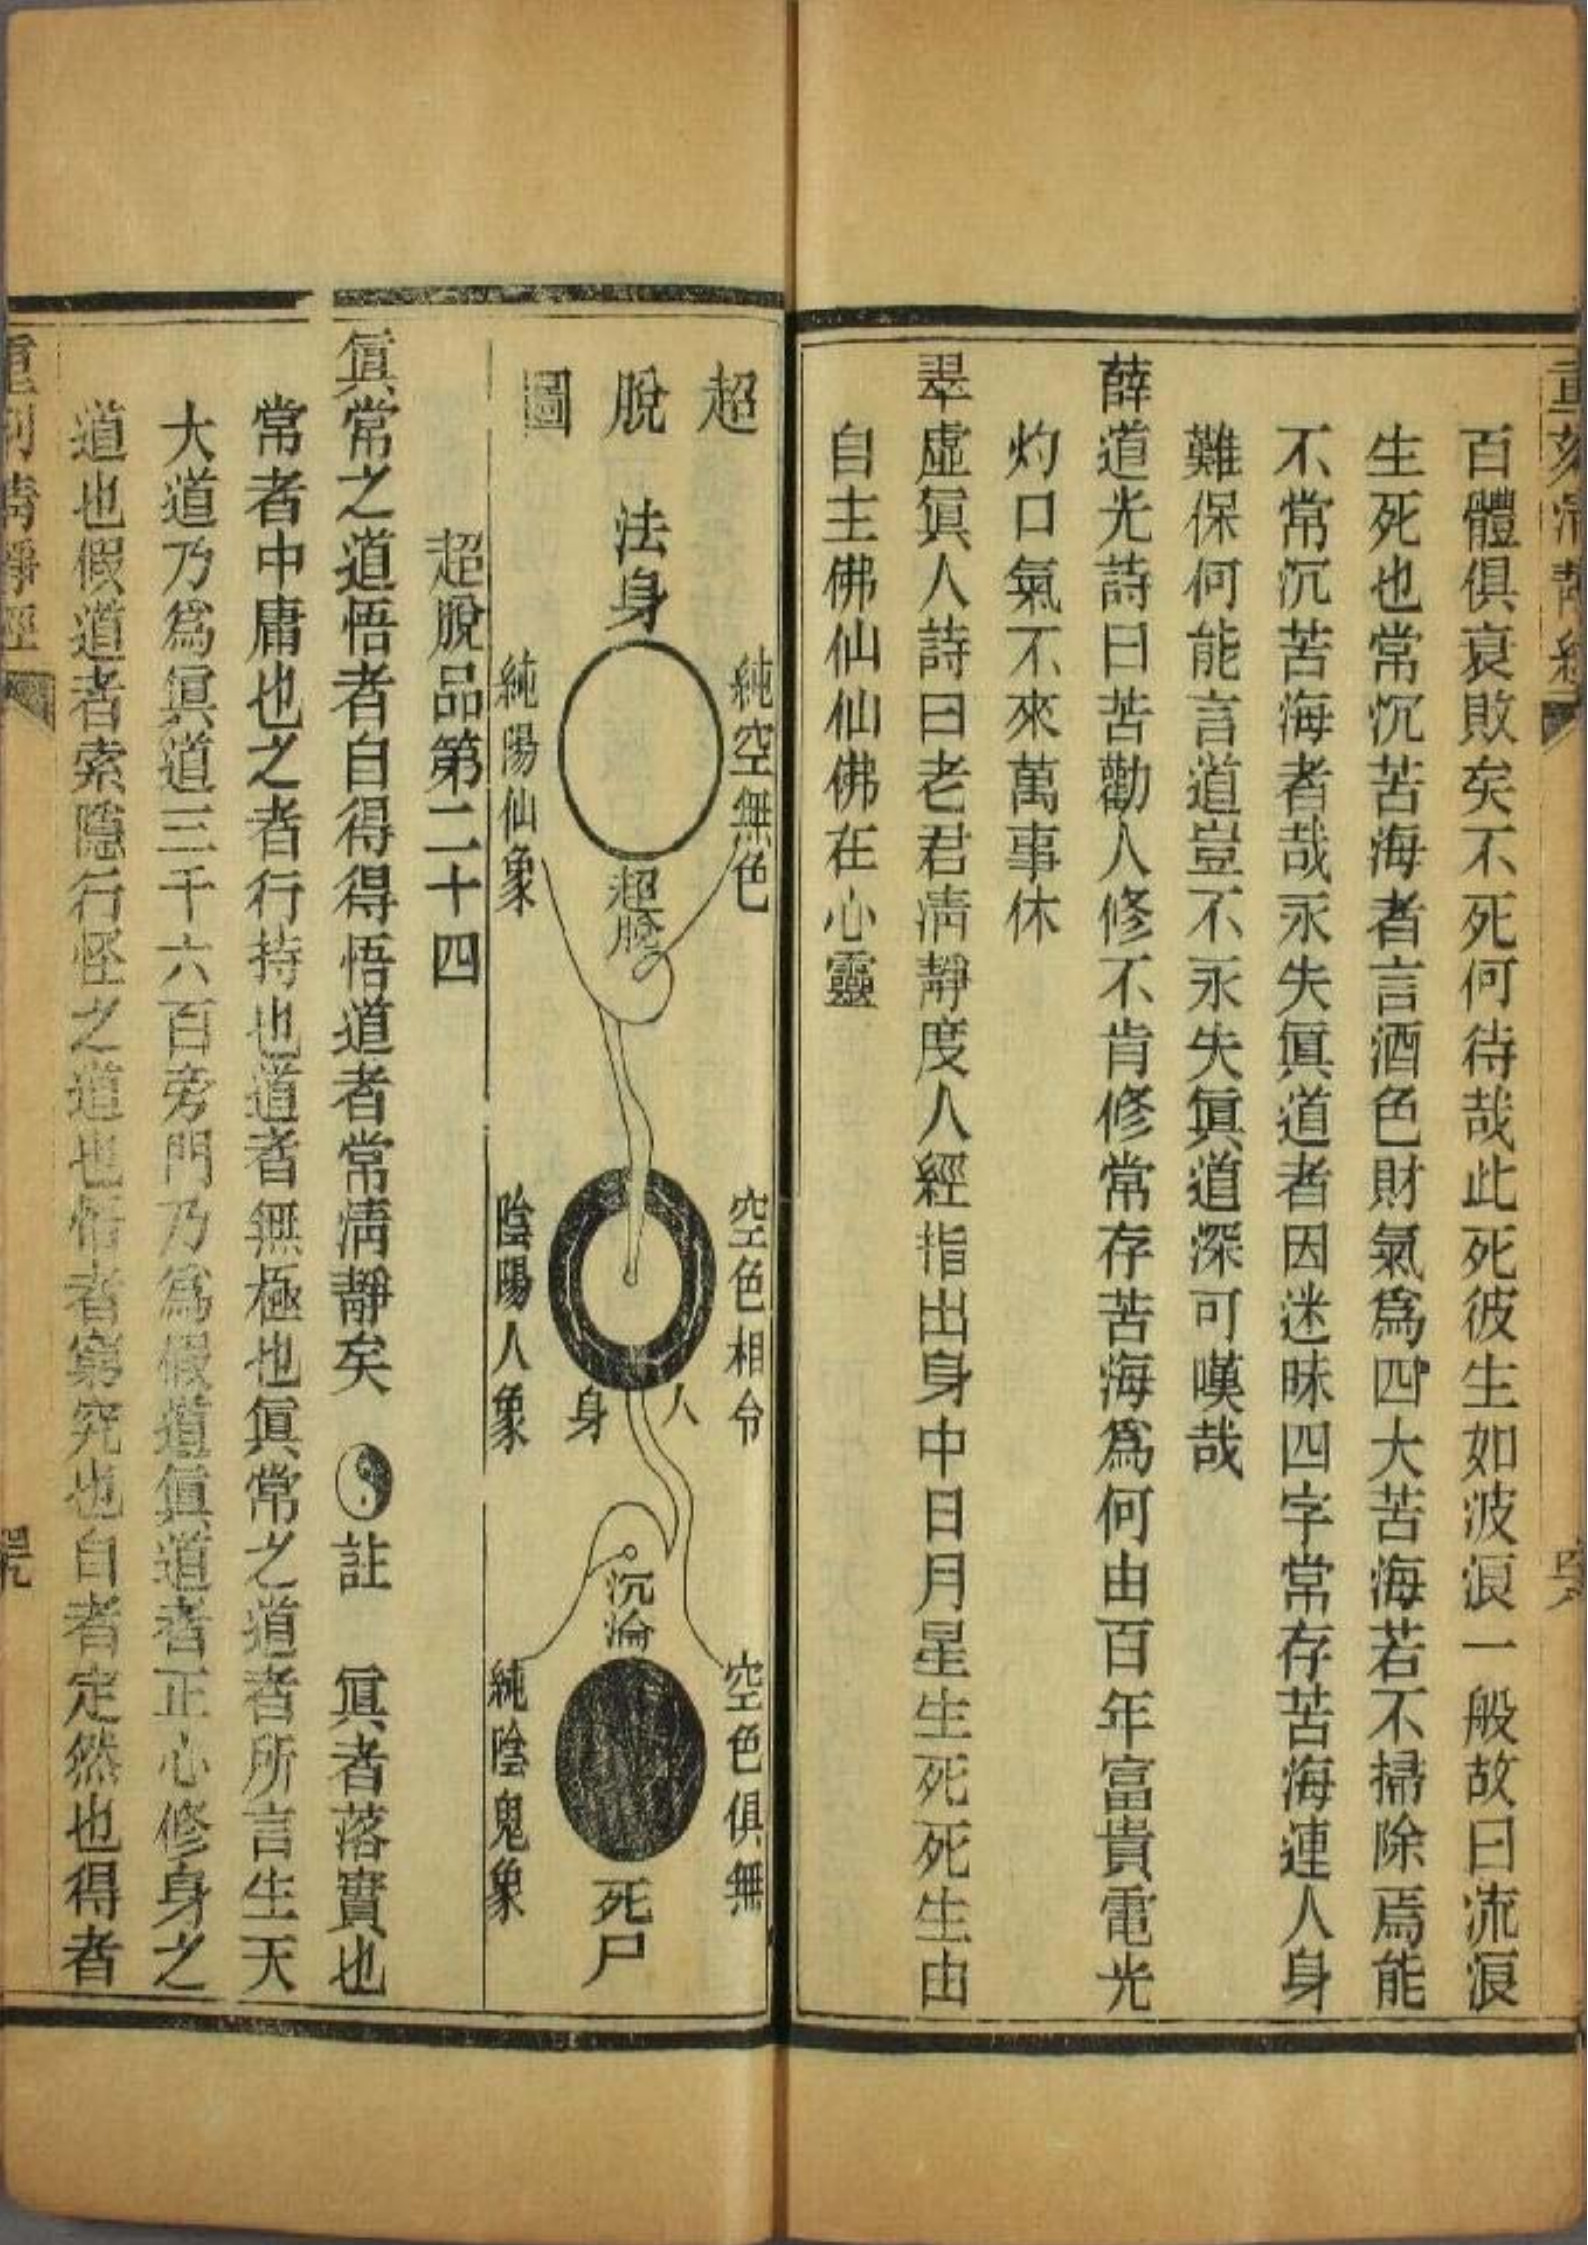 百體俱衰敗矣不死何待哉此死彼生如波浪一般故曰流浪
生死也常沉苦海者言酒色財氣爲四大苦海若不掃除焉能
不常沉苦海者哉永失眞道者因迷昧四字常存苦海連人身
難保何能言道豈不永失眞道深可嘆哉
薛道光詩曰苦勸人修不肯修常存苦海爲何由百年富貴電光
灼口氣不來萬事休
翠虛眞人詩曰老君淸靜度人經指出身中日月星生死死生由
自主佛仙仙佛在心靈
超脫圖
純空無色
法身
超脫
純陽仙象
空色相令
人身
陰陽人象
空色俱無
沉淪
死尸
純陰鬼象
超脫品第二十四
眞常之道悟者自得得悟道者常淸靜矣 註 眞者落實也
常者中庸也之者行持也道者無極也眞常之道者所言生天
大道乃爲眞道三千六百旁門乃爲假道眞道者正心修身之
道也假道者索隱行怪之道也悟者窮究也自者定然也得者